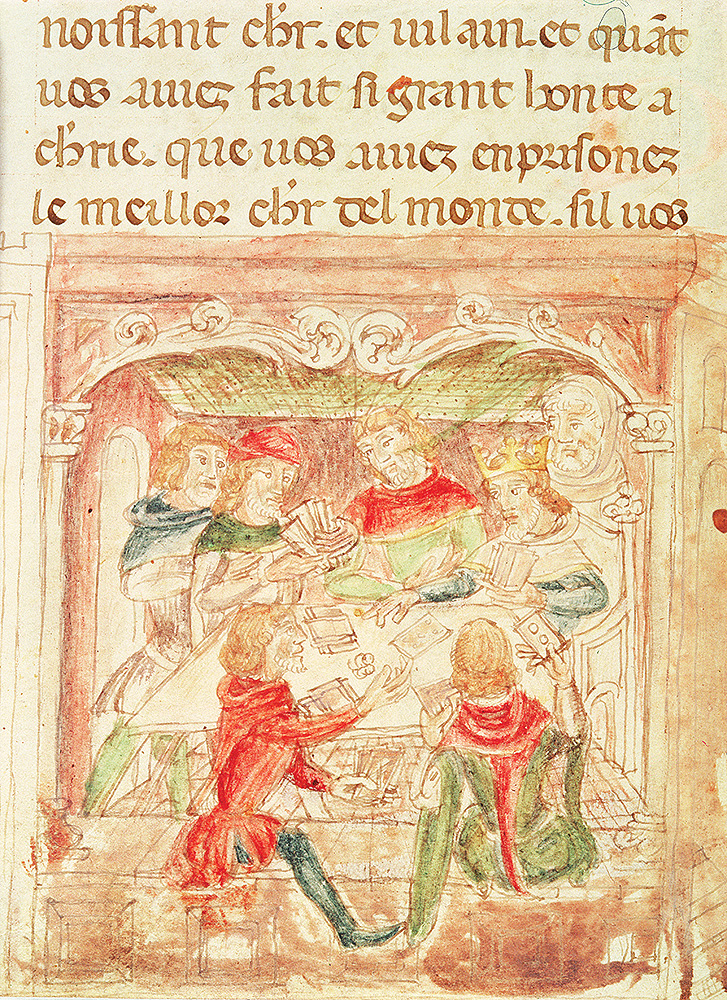 noissant chr. et uilain. et quāt
uos auiez fait si grant honte a
chrie. que uos auiez enprisonez
le meillor chr del monde. sil uos